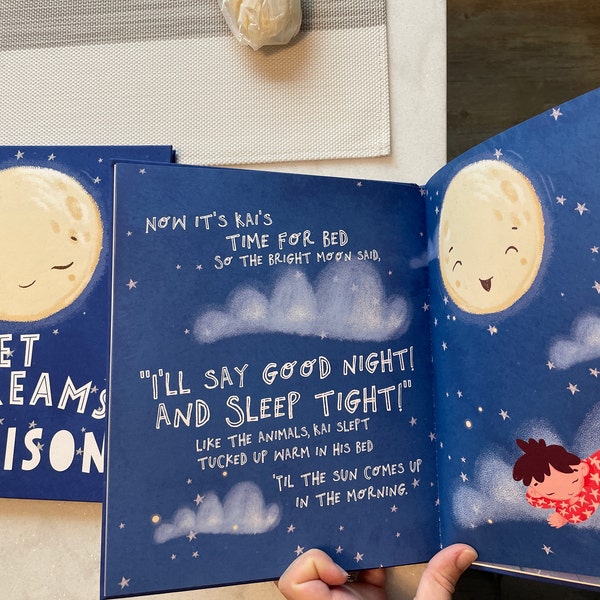 NOW IT'S KAI'S
TIME FOR BED
SO THE BRIGHT MOON SAID,
"I'LL SAY GOOD NIGHT!
AND SLEEP TIGHT!"
LIKE THE ANIMALS, KAI SLEPT
TUCKED UP WARM IN HIS BED
'TIL THE SUN COMES UP
IN THE MORNING.
ET
REAMS
ISON